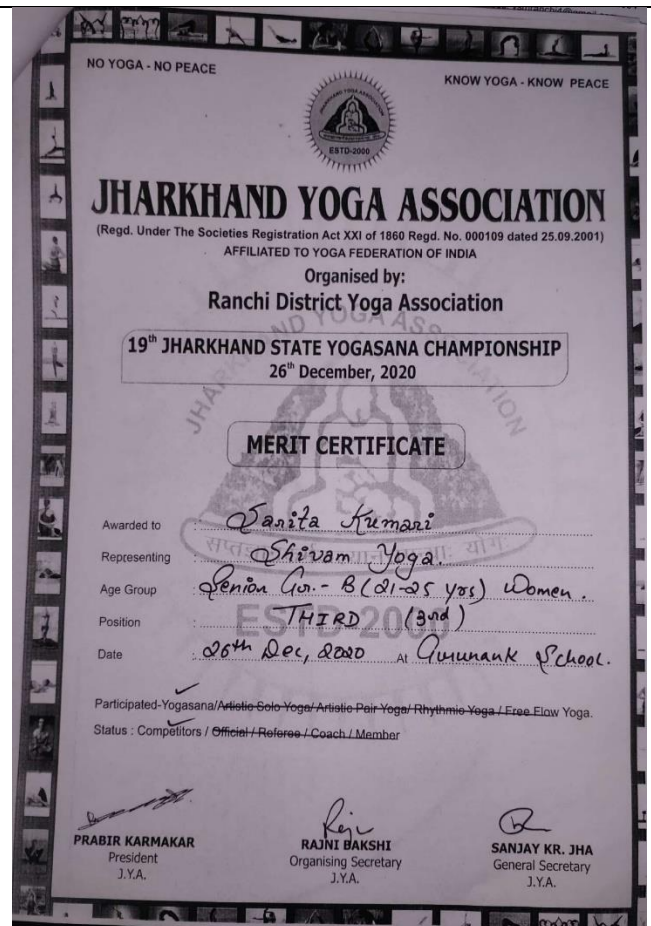 NO YOGA - NO PEACE
KNOW YOGA - KNOW PEACE
JHARKHAND YOGA ASSOCIATION
ESTD-2000
JHARKHAND YOGA ASSOCIATION
(Regd. Under The Societies Registration Act XXI of 1860 Regd. No. 000109 dated 25.09.2001)
AFFILIATED TO YOGA FEDERATION OF INDIA
Organised by:
Ranchi District Yoga Association
19th JHARKHAND STATE YOGASANA CHAMPIONSHIP
26th December, 2020
MERIT CERTIFICATE
Awarded to : Sarita Kumari
Representing : Shivam Yoga.
Age Group : Senior Gr. - B (21-25 yrs) Women.
Position : THIRD (3rd)
Date : 26th Dec, 2020 At Gurunank School.
ESTD-2000
Participated-Yogasana/Artistic Solo Yoga/ Artistic Pair Yoga/ Rhythmic Yoga / Free Flow Yoga.
Status : Competitors / Official / Referee / Coach / Member
PRABIR KARMAKAR
President
J.Y.A.
RAJNI BAKSHI
Organising Secretary
J.Y.A.
SANJAY KR. JHA
General Secretary
J.Y.A.